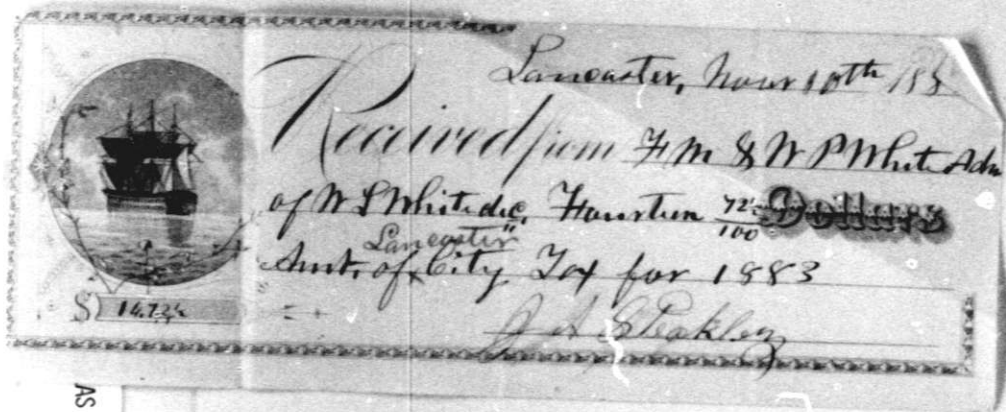 Lancaster, Novr 10th 188
Received from F M & W P White Adm
of W L White dec, Fourteen 72½/100 Dollars
Lancaster
Amt, of City Tax for 1883
$ 14.72½
J A Steakley
AS